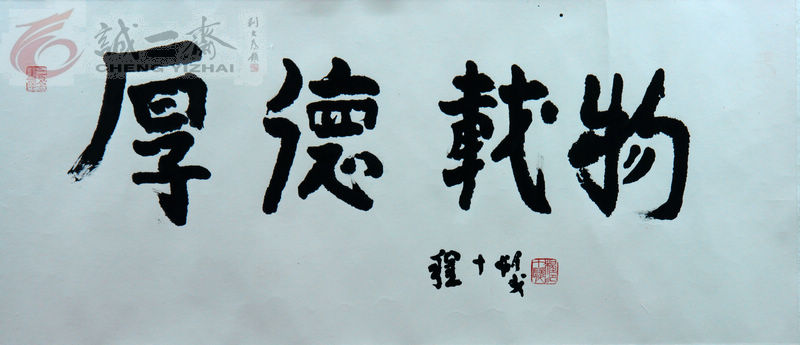 誠一齋
CHENG YIZHAI
厚德載物
程十髮